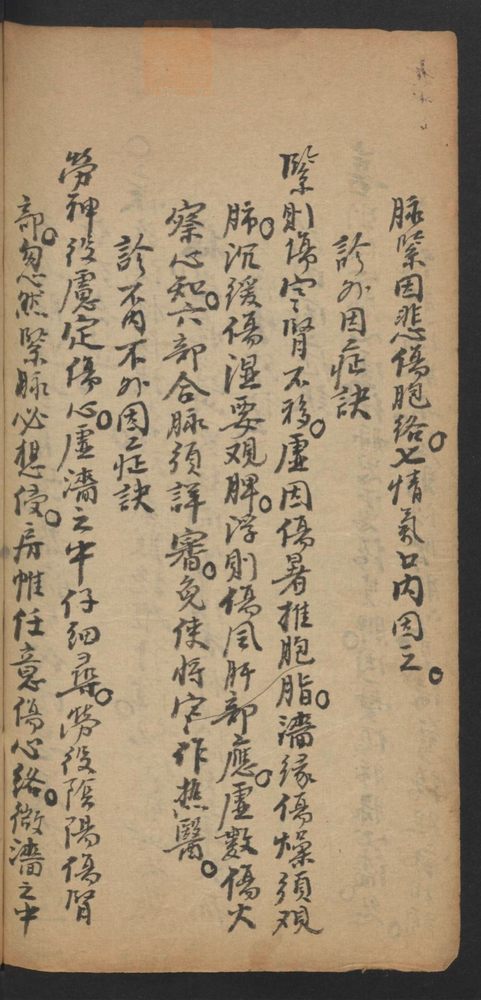 脉緊因悲傷胞絡。七情氣口内因之。
診外因症訣
緊則傷寒腎不移。虛因傷暑推胞脂。濇緣傷燥須观
肺。沉緩傷湿要观脾。浮則傷風肝部應。虛数傷火
察心知。六部合脉須詳審。免使将寒作热醫。
診不内不外因症訣
勞神役慮定傷心。虛濇之中仔细尋。勞役陰陽傷腎
部。忽然緊脉必想侵。房帷任意傷心絡。微濇之中